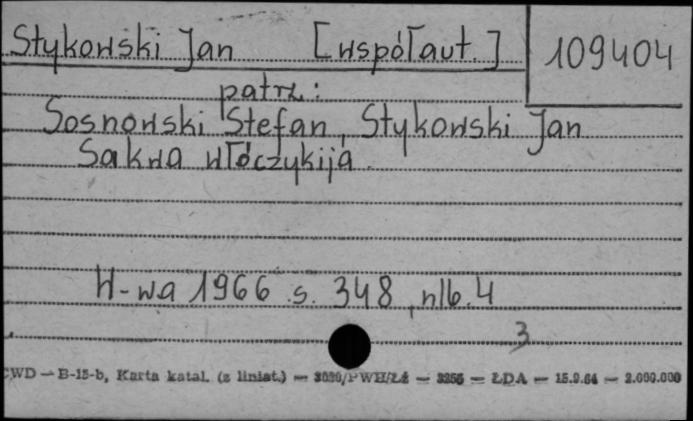 Stykowski Jan [współaut.] 109404
patrz:
Sosnowski Stefan, Stykowski Jan
Sakwa włóczykija.
W-wa 1966 s. 348, nlb. 4
3
CWD — B-15-b, Karta katal. (z liniat.) — PWH/Łź — — ŁDA — 15.9.64 — 2.000.000